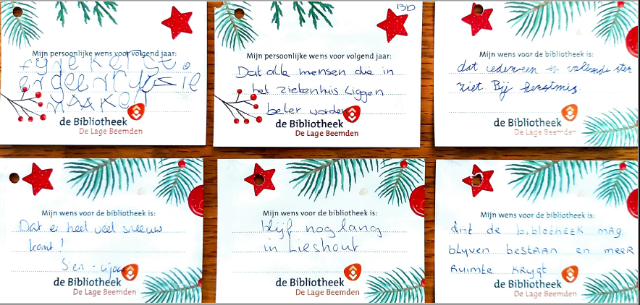 Mijn persoonlijke wens voor volgend jaar:
fijne kerst.
de Bibliotheek
De Lage Beemden
130
Mijn persoonlijke wens voor volgend jaar:
Dat alle mensen die in
het ziekenhuis liggen
beter worden
de Bibliotheek
De Lage Beemden
Mijn wens voor de bibliotheek is:
dat iedereen volgende
niet Bij kerstmis
de Bibliotheek
De Lage Beemden
Mijn wens voor de bibliotheek is:
Dat er heel veel sneeuw
komt!
de Bibliotheek
De Lage Beemden
Mijn wens voor de bibliotheek is:
blijf nog lang
in Lieshout
de Bibliotheek
De Lage Beemden
Mijn wens voor de bibliotheek is:
dat de bibliotheek mag
blyven bestaan en meer
Ruimte krygt
de Bibliotheek
De Lage Beemden